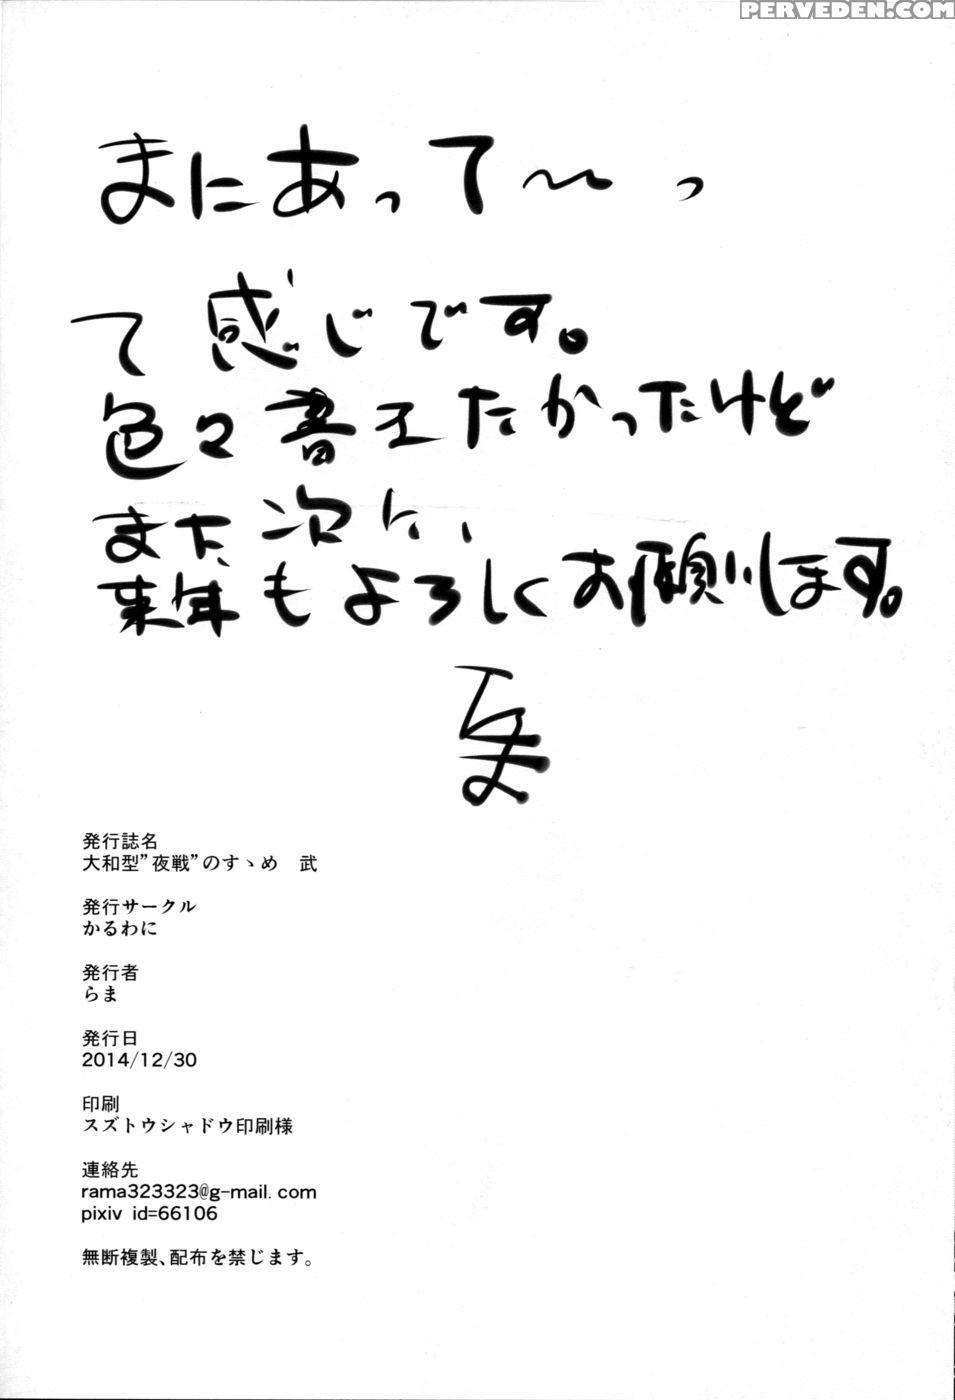 PERVEDEN.COM
まにあって〜っ
て感じです。
色々書きたかったけど
また次に、
来年もよろしくお願いします。
らま
発行誌名
大和型”夜戦”のすゝめ　武
発行サークル
かるわに
発行者
らま
発行日
2014/12/30
印刷
スズトウシャドウ印刷様
連絡先
rama323323@g-mail.com
pixiv id=66106
無断複製、配布を禁じます。